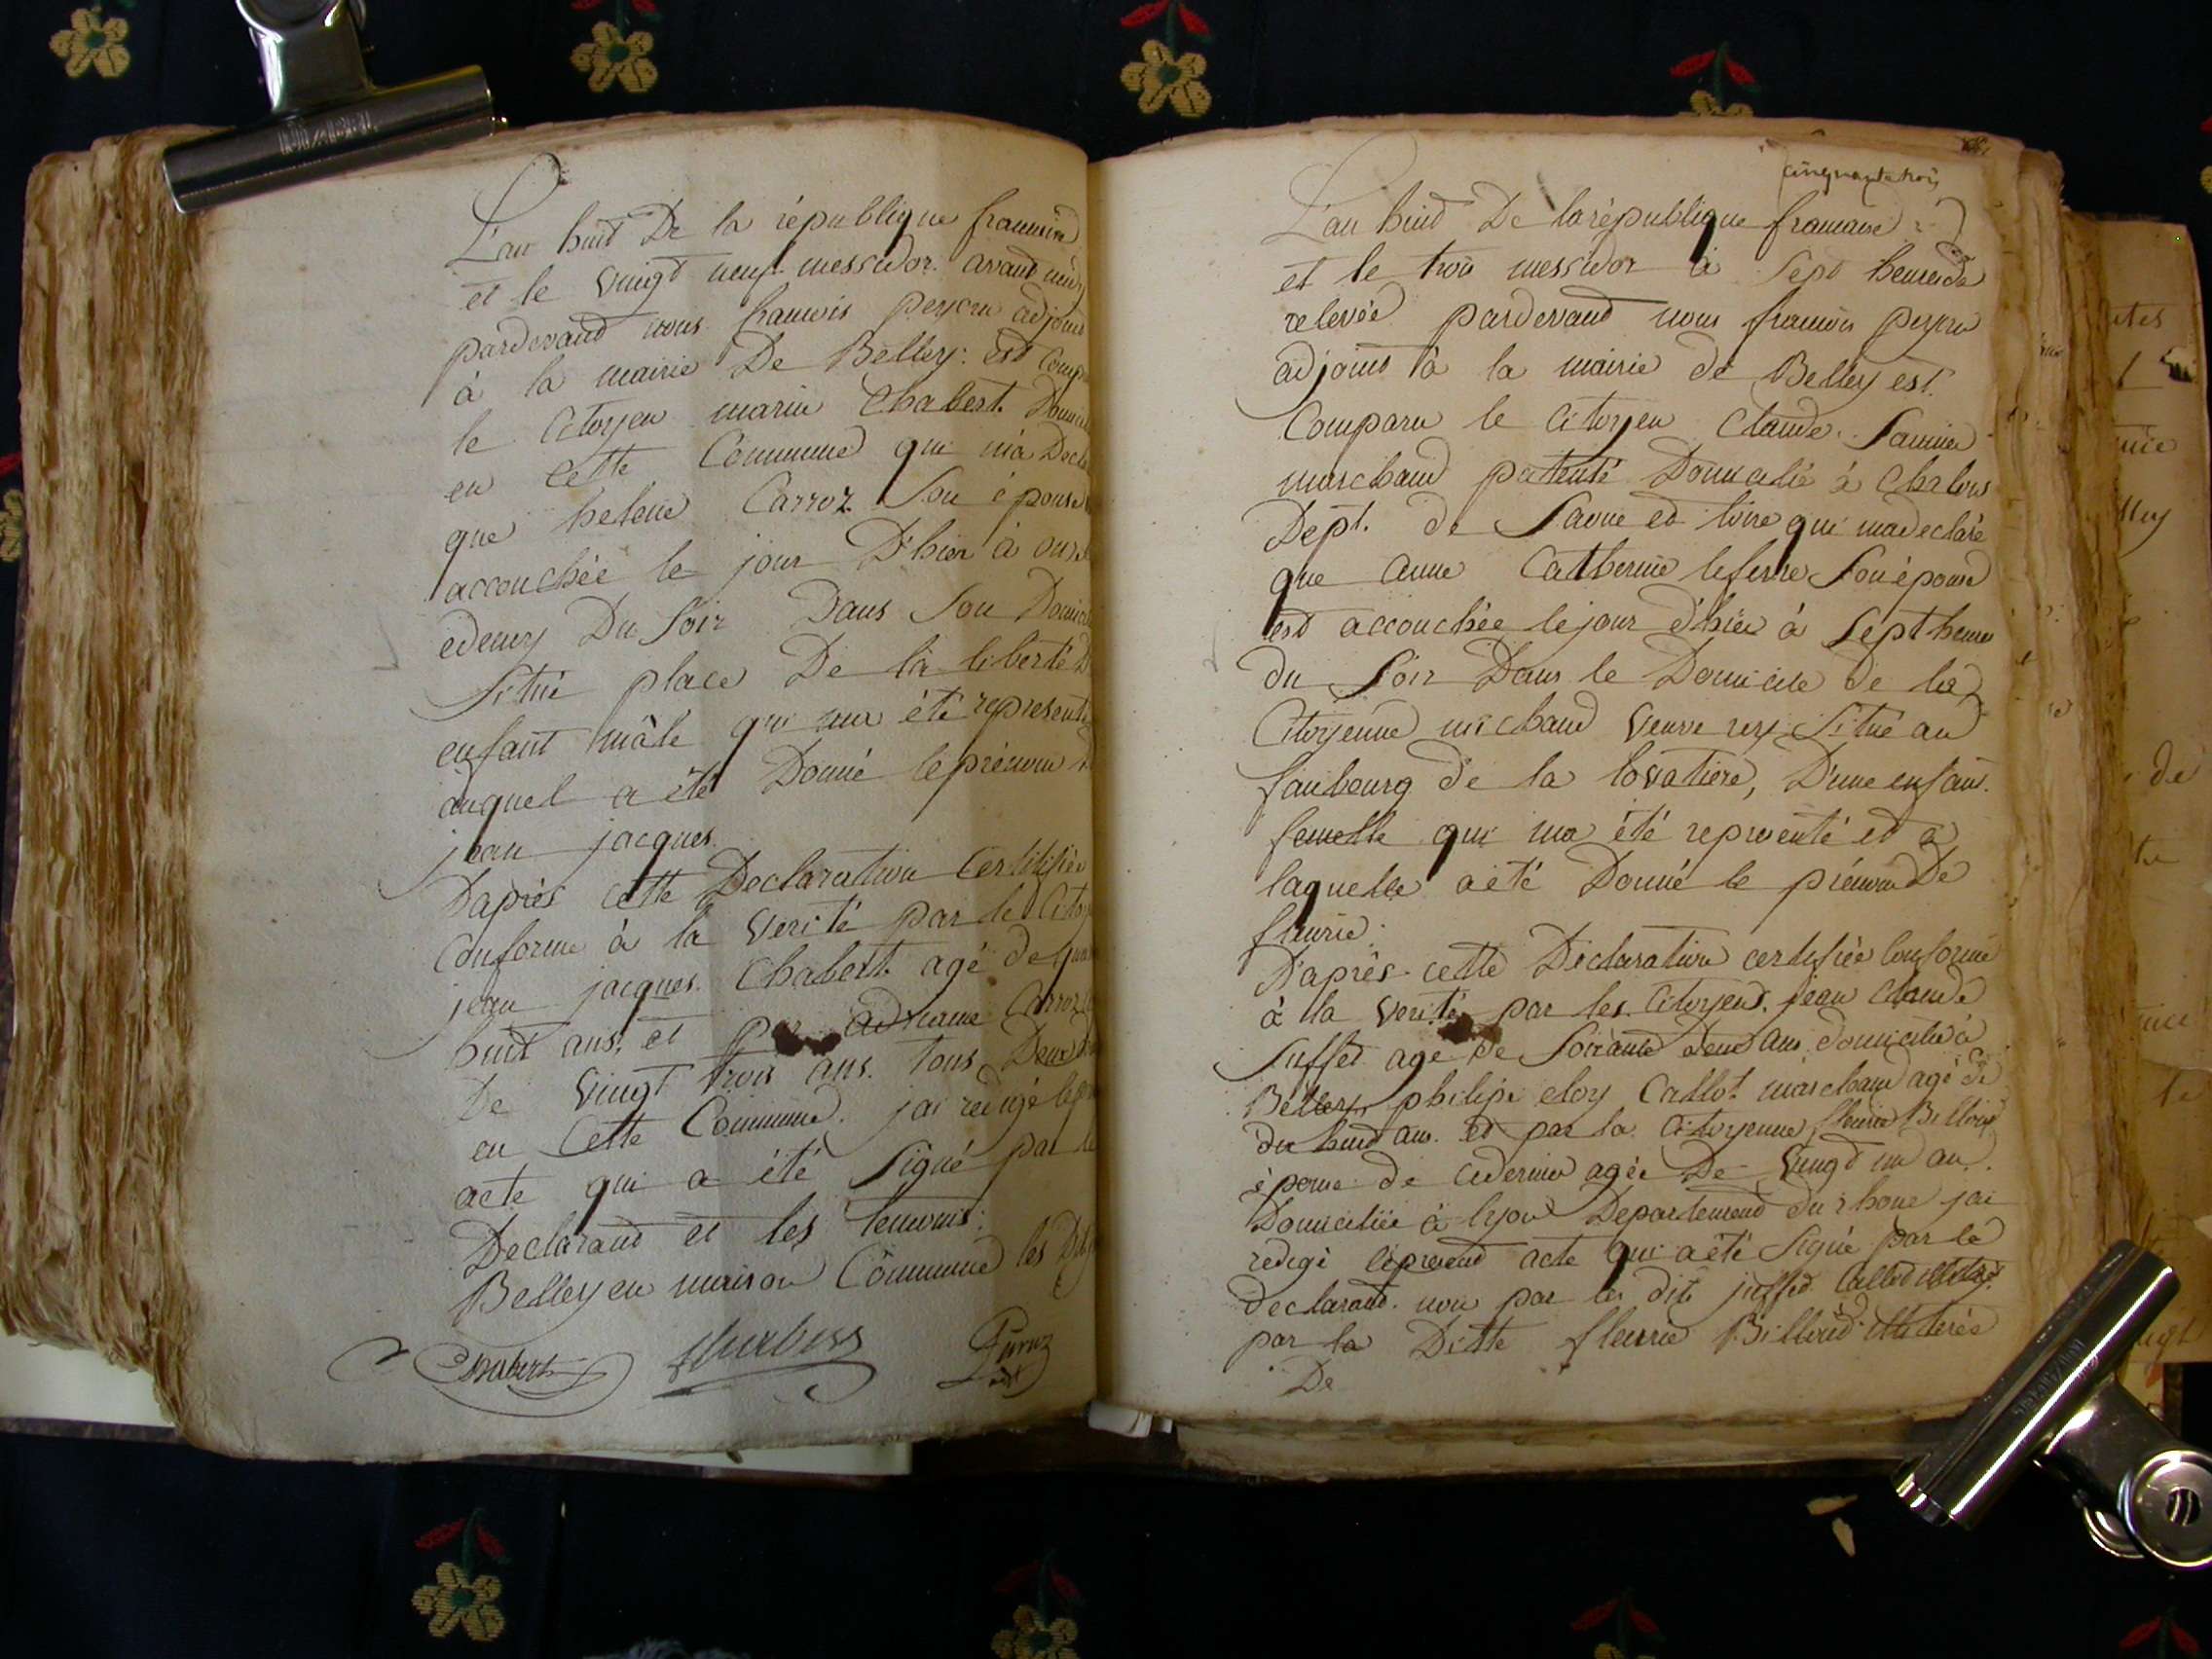 L'an huit De la république francaise
et le vingt neuf messidor avant midy
pardevant nous francois peyzeu adjoint
à la mairie De Belley: est comp
le Citoyen marin Chabert Domicil
en cette Commune qui m'a Decla
que helene Carroz Son épouse
accouchée le jour D'hier à onze
edemy Du Soir Dans Son Domici
Situé place De la liberté D
enfant mâle qui ma été represent
auquel a été Donné le prénom
jean jacques.
Daprès cette Declaration Certifiée
Conforme à la verité par le Cito
jean jacques Chabert agé de
huit ans, et par Carroz
De vingt trois ans tous Deux
en Cette Commune. jai redigé le
acte qui a été Signé par le
Declarant et les temoins:
Belley en maison Commune les
Chabert
cinquante trois
L'an huit De la république francaise
et le trois messidor à Sept heures de
relevée pardevant nous francois peyzeu
adjoint à la mairie de Belley est
Comparu le Citoyen Claude
marchand patenté Domicilié à Chalons
Dept. de Saone et loire qui ma declaré
que anne Catherine lefevre Son épouse
est accouchée le jour d'hier à Sept heures
du Soir Dans le Domicile de la
Citoyenne michaud veuve rey Situé au
faubourg de la lovatiere, D'une enfant
femelle qui ma été representé et a
laquelle a été Donné le prénom De
fleurie.
D'après cette Déclaration certifiée Conforme
à la verité par les Citoyens. jean Claude
juffet agé de Soixante deux ans domicilié à
Belley philipe eloy Callot marchand agé de
dix huit ans. et par la Citoyenne fleurie Billoud
épouse de agée De vingt un an.
Domiciliée à lyon Departement du rhone jai
redigé le present acte qui a été Signé par le
declarant. non par les dits juffet Callot
par la Ditte fleurie Billoud illiterés
De